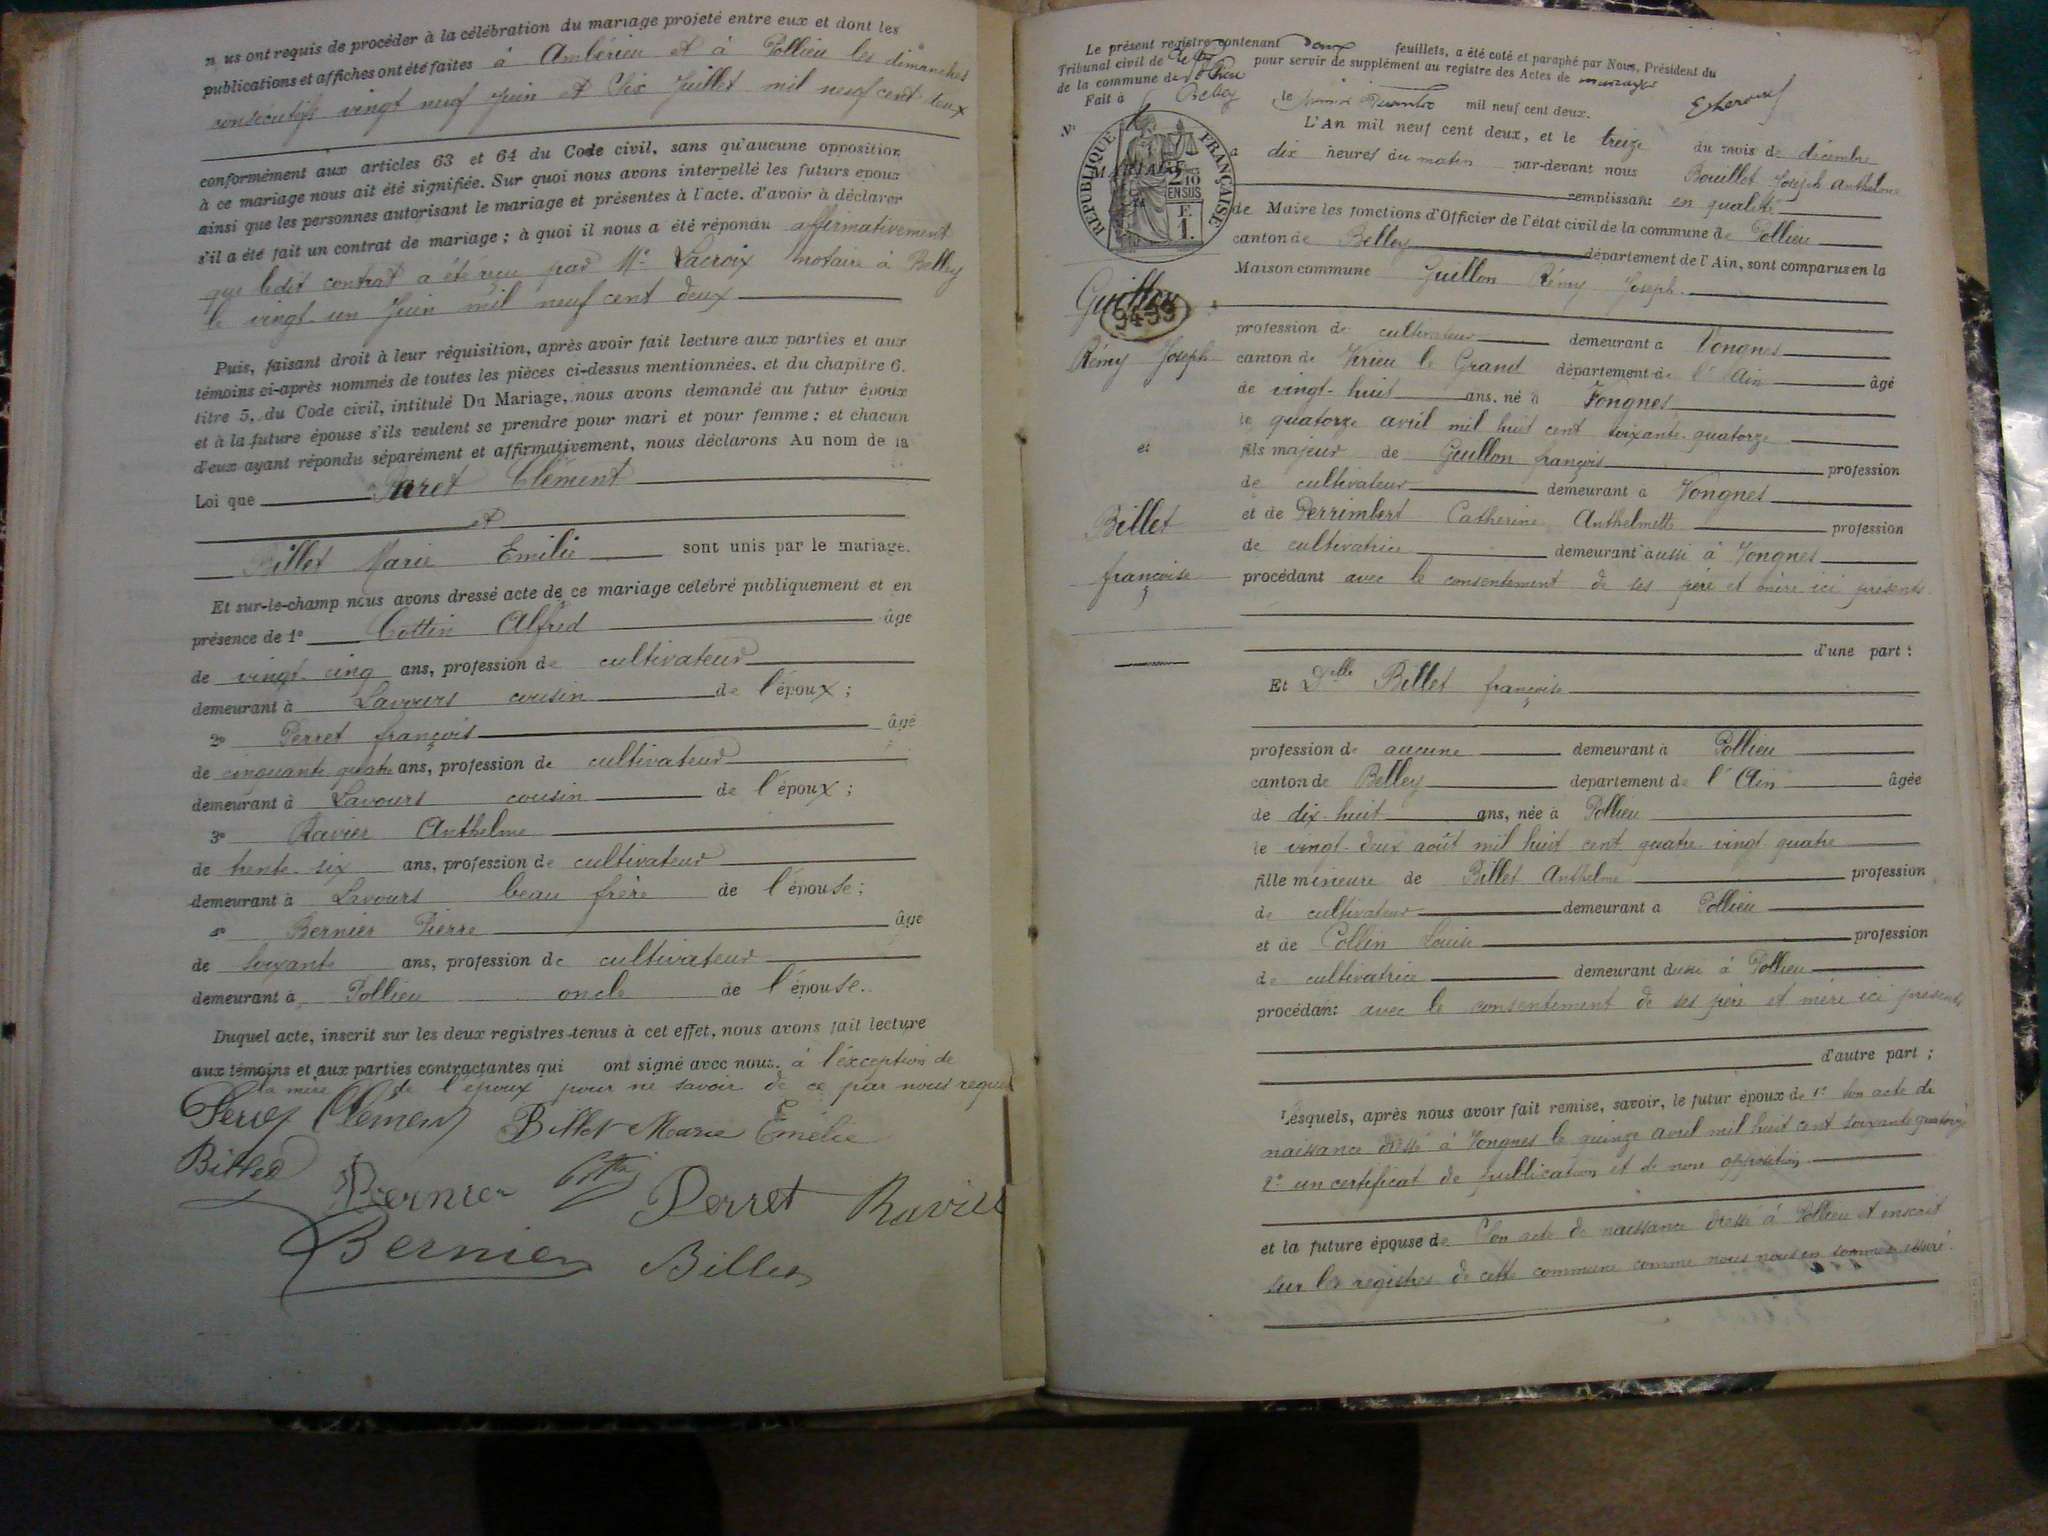 nous ont requis de procéder à la célébration du mariage projeté entre eux et dont les
publications et affiches ont été faites à Ambérieu et à Pollieu les dimanches
consécutifs vingt neuf Juin et Six Juillet mil neuf cent deux
conformément aux articles 63 et 64 du Code civil, sans qu'aucune opposition
à ce mariage nous ait été signifiée. Sur quoi nous avons interpellé les futurs epoux
ainsi que les personnes autorisant le mariage et présentes à l'acte, d'avoir à déclarer
s'il a été fait un contrat de mariage ; à quoi il nous a été répondu affirmativement
que ledit contrat a été reçu par Me Lacroix notaire à Belley
le vingt-un Juin mil neuf cent deux
Puis, faisant droit à leur réquisition, après avoir fait lecture aux parties et aux
témoins ci-après nommés de toutes les pièces ci-dessus mentionnées, et du chapitre 6,
titre 5, du Code civil, intitulé Du Mariage, nous avons demandé au futur époux
et à la future épouse s'ils veulent se prendre pour mari et pour femme ; et chacun
d'eux ayant répondu séparément et affirmativement, nous déclarons Au nom de la
Loi que Perret Clément
et
Billet Marie Emilie sont unis par le mariage.
Et sur-le-champ nous avons dressé acte de ce mariage célébré publiquement et en
présence de 1° Cottin Alfred âgé
de vingt-cinq ans, profession de cultivateur
demeurant à Lavours cousin de l'époux ;
2° Perret françois âgé
de cinquante quatre ans, profession de cultivateur
demeurant à Lavours cousin de l'époux ;
3° Ravier Anthelme
de trente-six ans, profession de cultivateur
demeurant à Lavours beau frère de l'épouse ;
4° Bernier Pierre âgé
de soixante ans, profession de cultivateur
demeurant à Pollieu oncle de l'épouse.
Duquel acte, inscrit sur les deux registres tenus à cet effet, nous avons fait lecture
aux témoins et aux parties contractantes qui ont signé avec nous, à l'exception de
la mère de l'époux pour ne savoir de ce par nous requis
Perret Clément Billet Marie Emélie
Billet
Bernier Perret Ravier
Bernier Billet
Le présent registre contenant deux feuillets, a été coté et paraphé par Nous, Président du
Tribunal civil de Belley pour servir de supplément au registre des Actes de mariages
de la commune de Pollieu
Fait à Belley, le mil neuf cent deux.
N°
RÉPUBLIQUE FRANÇAISE
MARIAGE
2/10
EN SUS
F.
1.
L'An mil neuf cent deux, et le treize du mois de décembre
à dix heures du matin par-devant nous Bouillet Joseph Anthelme
remplissant en qualité
de Maire les fonctions d'Officier de l'état civil de la commune de Pollieu
canton de Belley département de l'Ain, sont comparus en la
Maison commune Guillon Rémy Joseph
Guillon
9459
Rémy Joseph
et
Billet
françoise
profession de cultivateur demeurant à Vongnes
canton de Virieu le Grand département de l'Ain âgé
de vingt-huit ans, né à Vongnes
le quatorze avril mil huit cent soixante-quatorze
fils majeur de Guillon françois profession
de cultivateur demeurant à Vongnes
et de Perrimbert Catherine Anthelmette profession
de cultivatrice demeurant aussi à Vongnes
procédant avec le consentement de ses père et mère ici présents
d'une part :
Et Dlle Billet françoise
profession de aucune demeurant à Pollieu
canton de Belley département de l'Ain âgée
de dix-huit ans, née à Pollieu
le vingt-deux août mil huit cent quatre-vingt-quatre
fille mineure de Billet Anthelme profession
de cultivateur demeurant à Pollieu
et de Collin Louise profession
de cultivatrice demeurant aussi à Pollieu
procédant avec le consentement de ses père et mère ici présents
d'autre part ;
Lesquels, après nous avoir fait remise, savoir, le futur époux de 1° son acte de
naissance dressé à Vongnes le quinze avril mil huit cent soixante quatorze
2° un certificat de publication et de non opposition
et la future épouse de son acte de naissance dressé à Pollieu et inscrit
sur les registres de cette commune comme nous nous en sommes assuré.